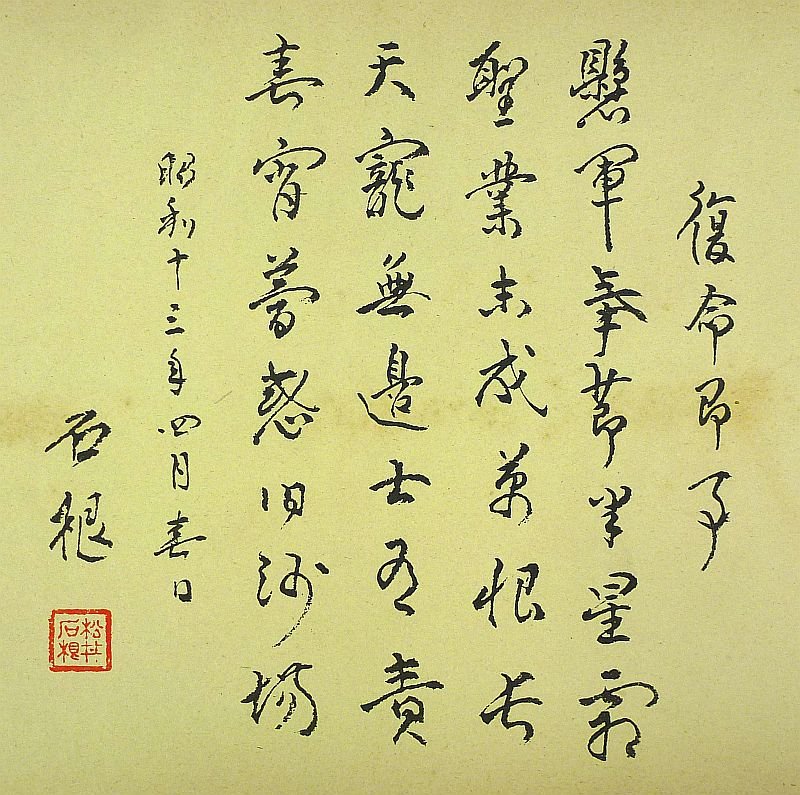 復命即事
懸軍奉節半星霜
聖業未成萬恨長
天寵無邊士有責
春宵夢惑旧沙場
昭和十三年四月春日
石根
松井石根